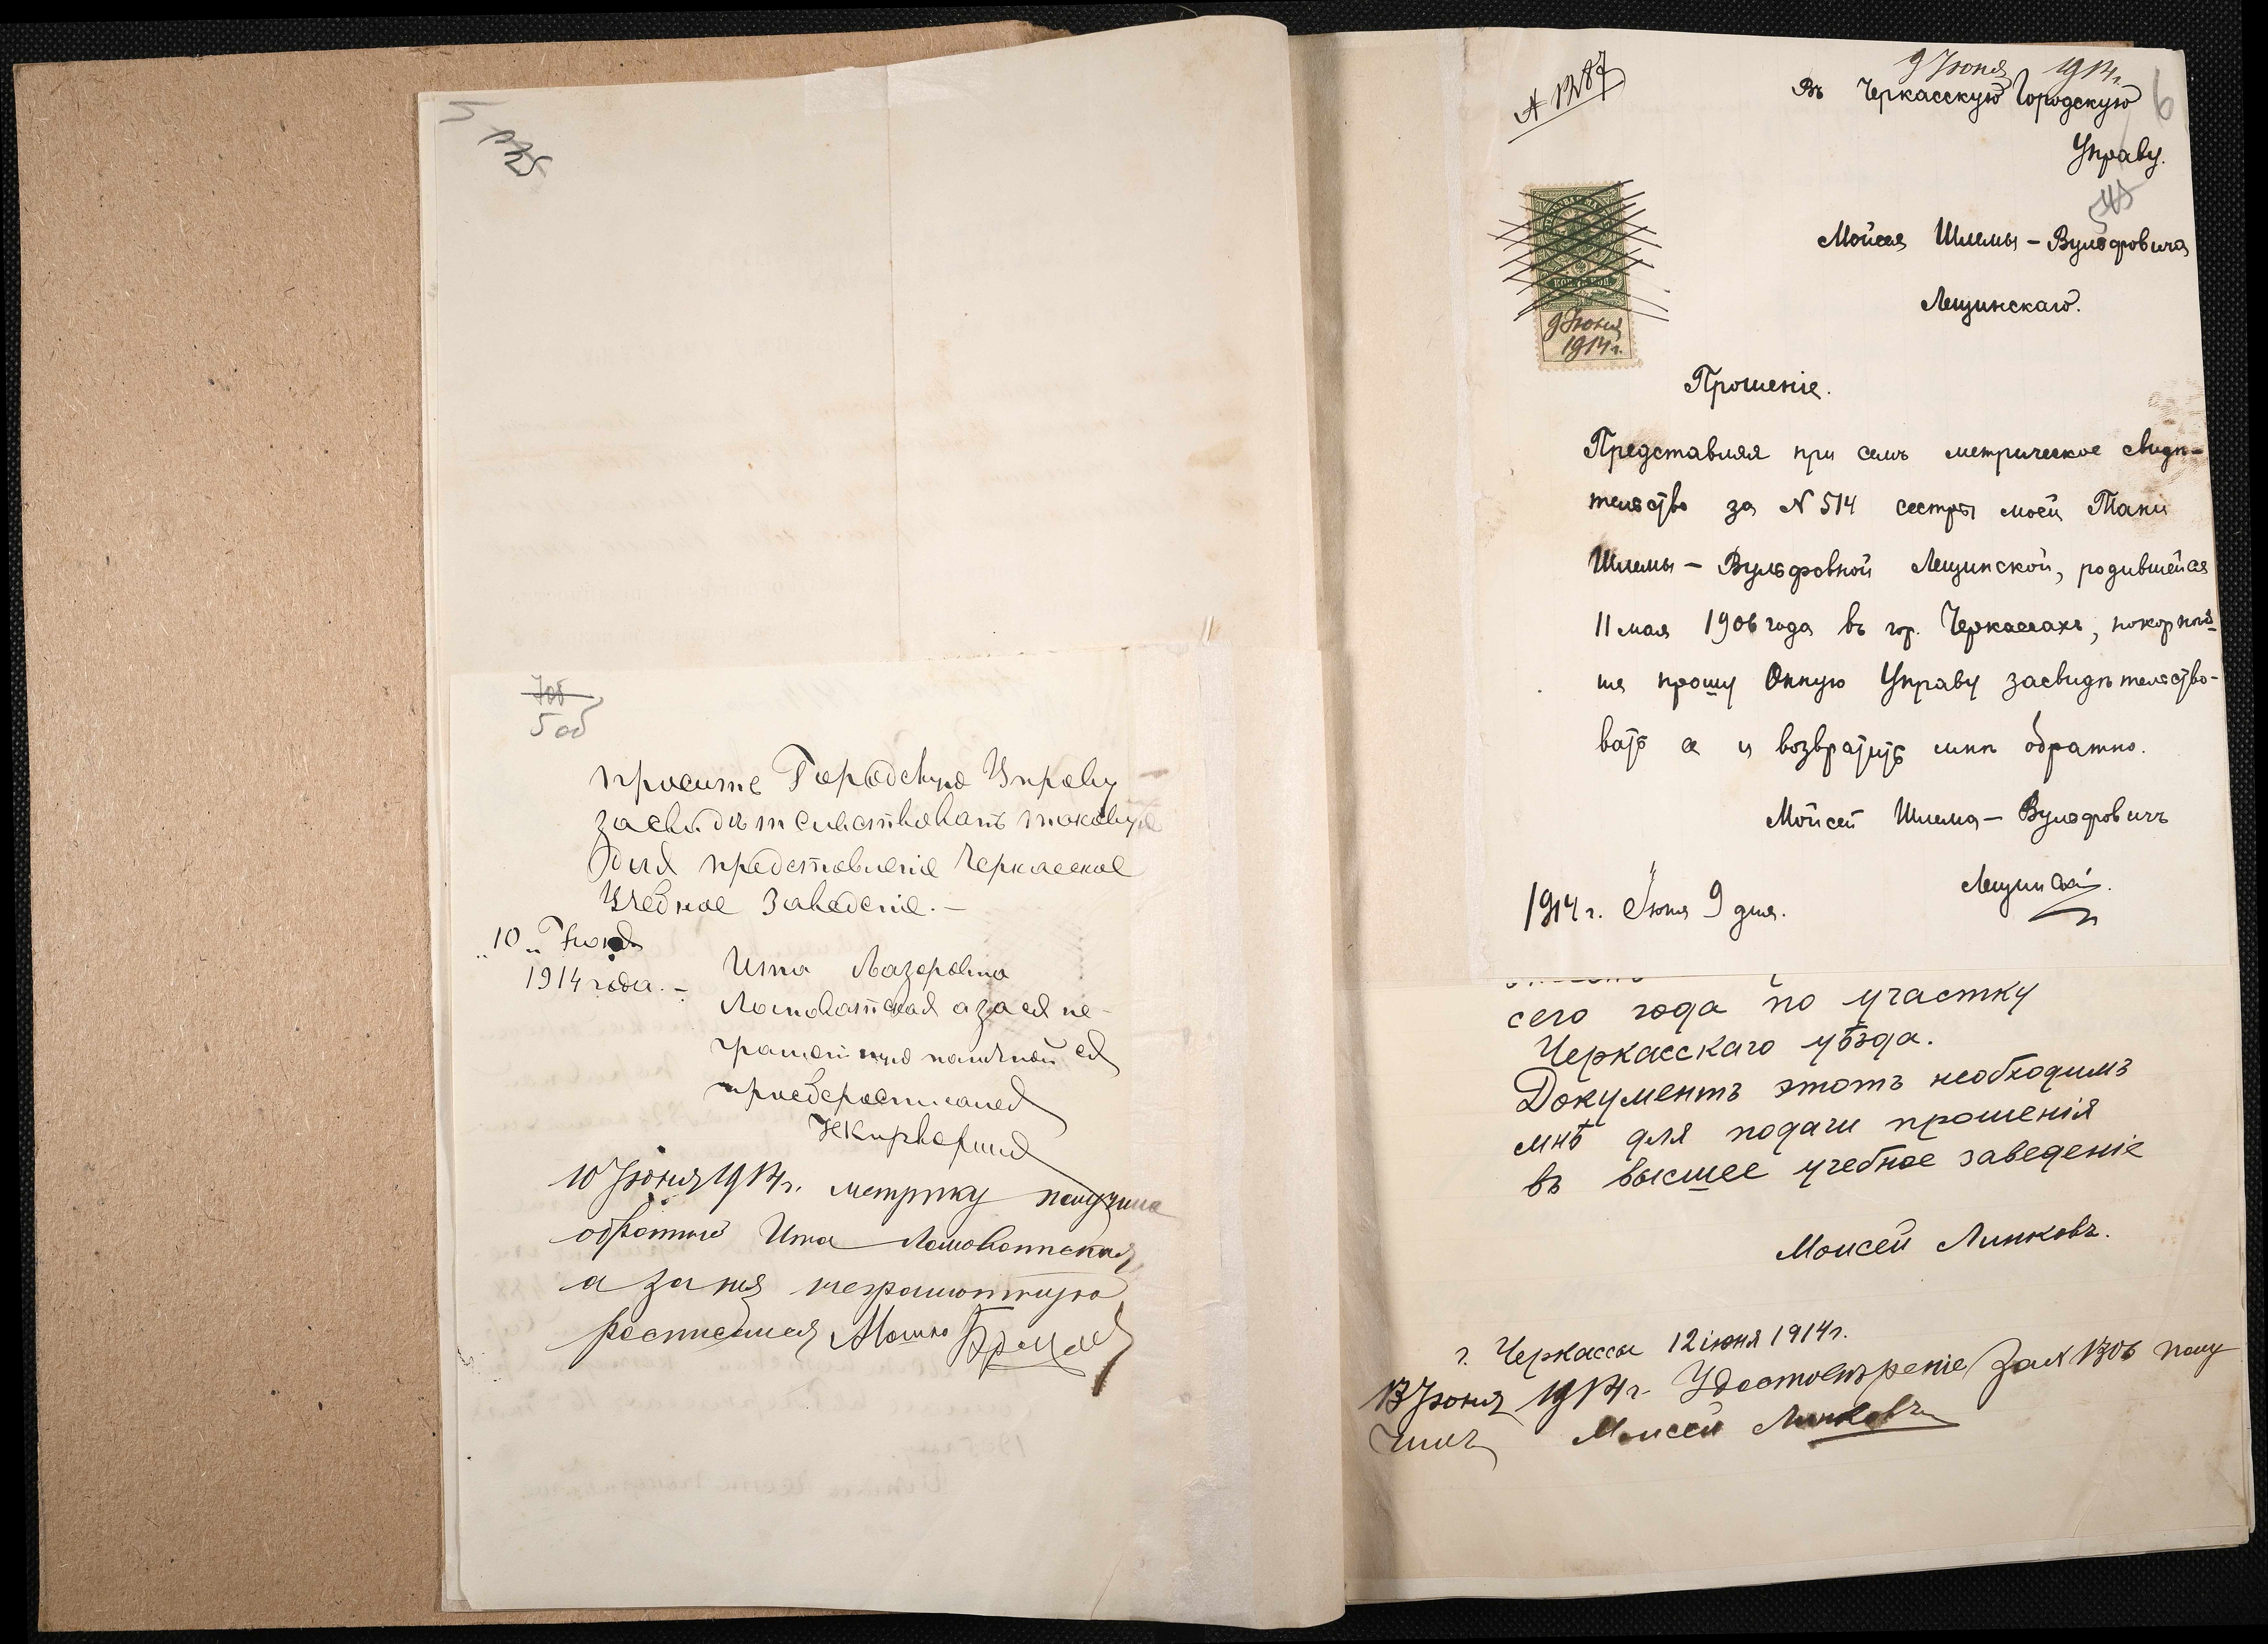 5
7об
5 об
просите Городскую Управу
засвидѣтельствовать таковую
для представленіе Черкасское
Учебное Заведеніе. —
„10„ Іюня
1914 года. —
Ита Лазеровна
Ломоватская а за ея не-
грамотную
10 Іюня 1914 г. метрику получила
обратно Ита Ломоватская
а за нея неграмотную
росписался Мошко
N 1287
9 Іюня 1914 г.
6
Въ Черкасскую Городскую
Управу.
Мойсея Шлемы – Вульфовича
Лещинскаго.
9 Іюня
1914 г.
Прошеніе.
Представляя при семъ метрическое свидѣ-
тельство за N 514 сестры моей Тани
Шлемы – Вульфовной Лещинской, родившейся
11 мая 1906 года въ гор. Черкассахъ, покорнѣй-
ше прошу Онную Управу засвидѣтельство-
вать ее и возвратить мнѣ обратно.
Мойсей Шлема – Вульфовичъ
Лещинскій.
1914 г. Іюня 9 дня.
сего года по участку
Черкасскаго уѣзда.
Документъ этотъ необходимъ
мнѣ для подачи прошенія
въ высшее учебное заведеніе
Моисей Линковъ.
г. Черкассы 12 іюня 1914 г.
13 Іюня 1914 г. Удостовѣреніе за N 1306 полу
чилъ Моисей Линковъ